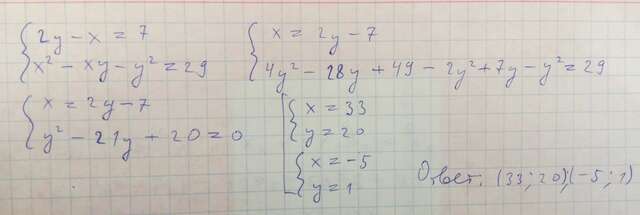 { 2y - x = 7
x² - xy - y² = 29
{ x = 2y - 7
4y² - 28y + 49 - 2y² + 7y - y² = 29
{ x = 2y - 7
y² - 21y + 20 = 0
[ { x = 33
y = 20
{ x = -5
y = 1
Ответ. (33; 20);(-5; 1)